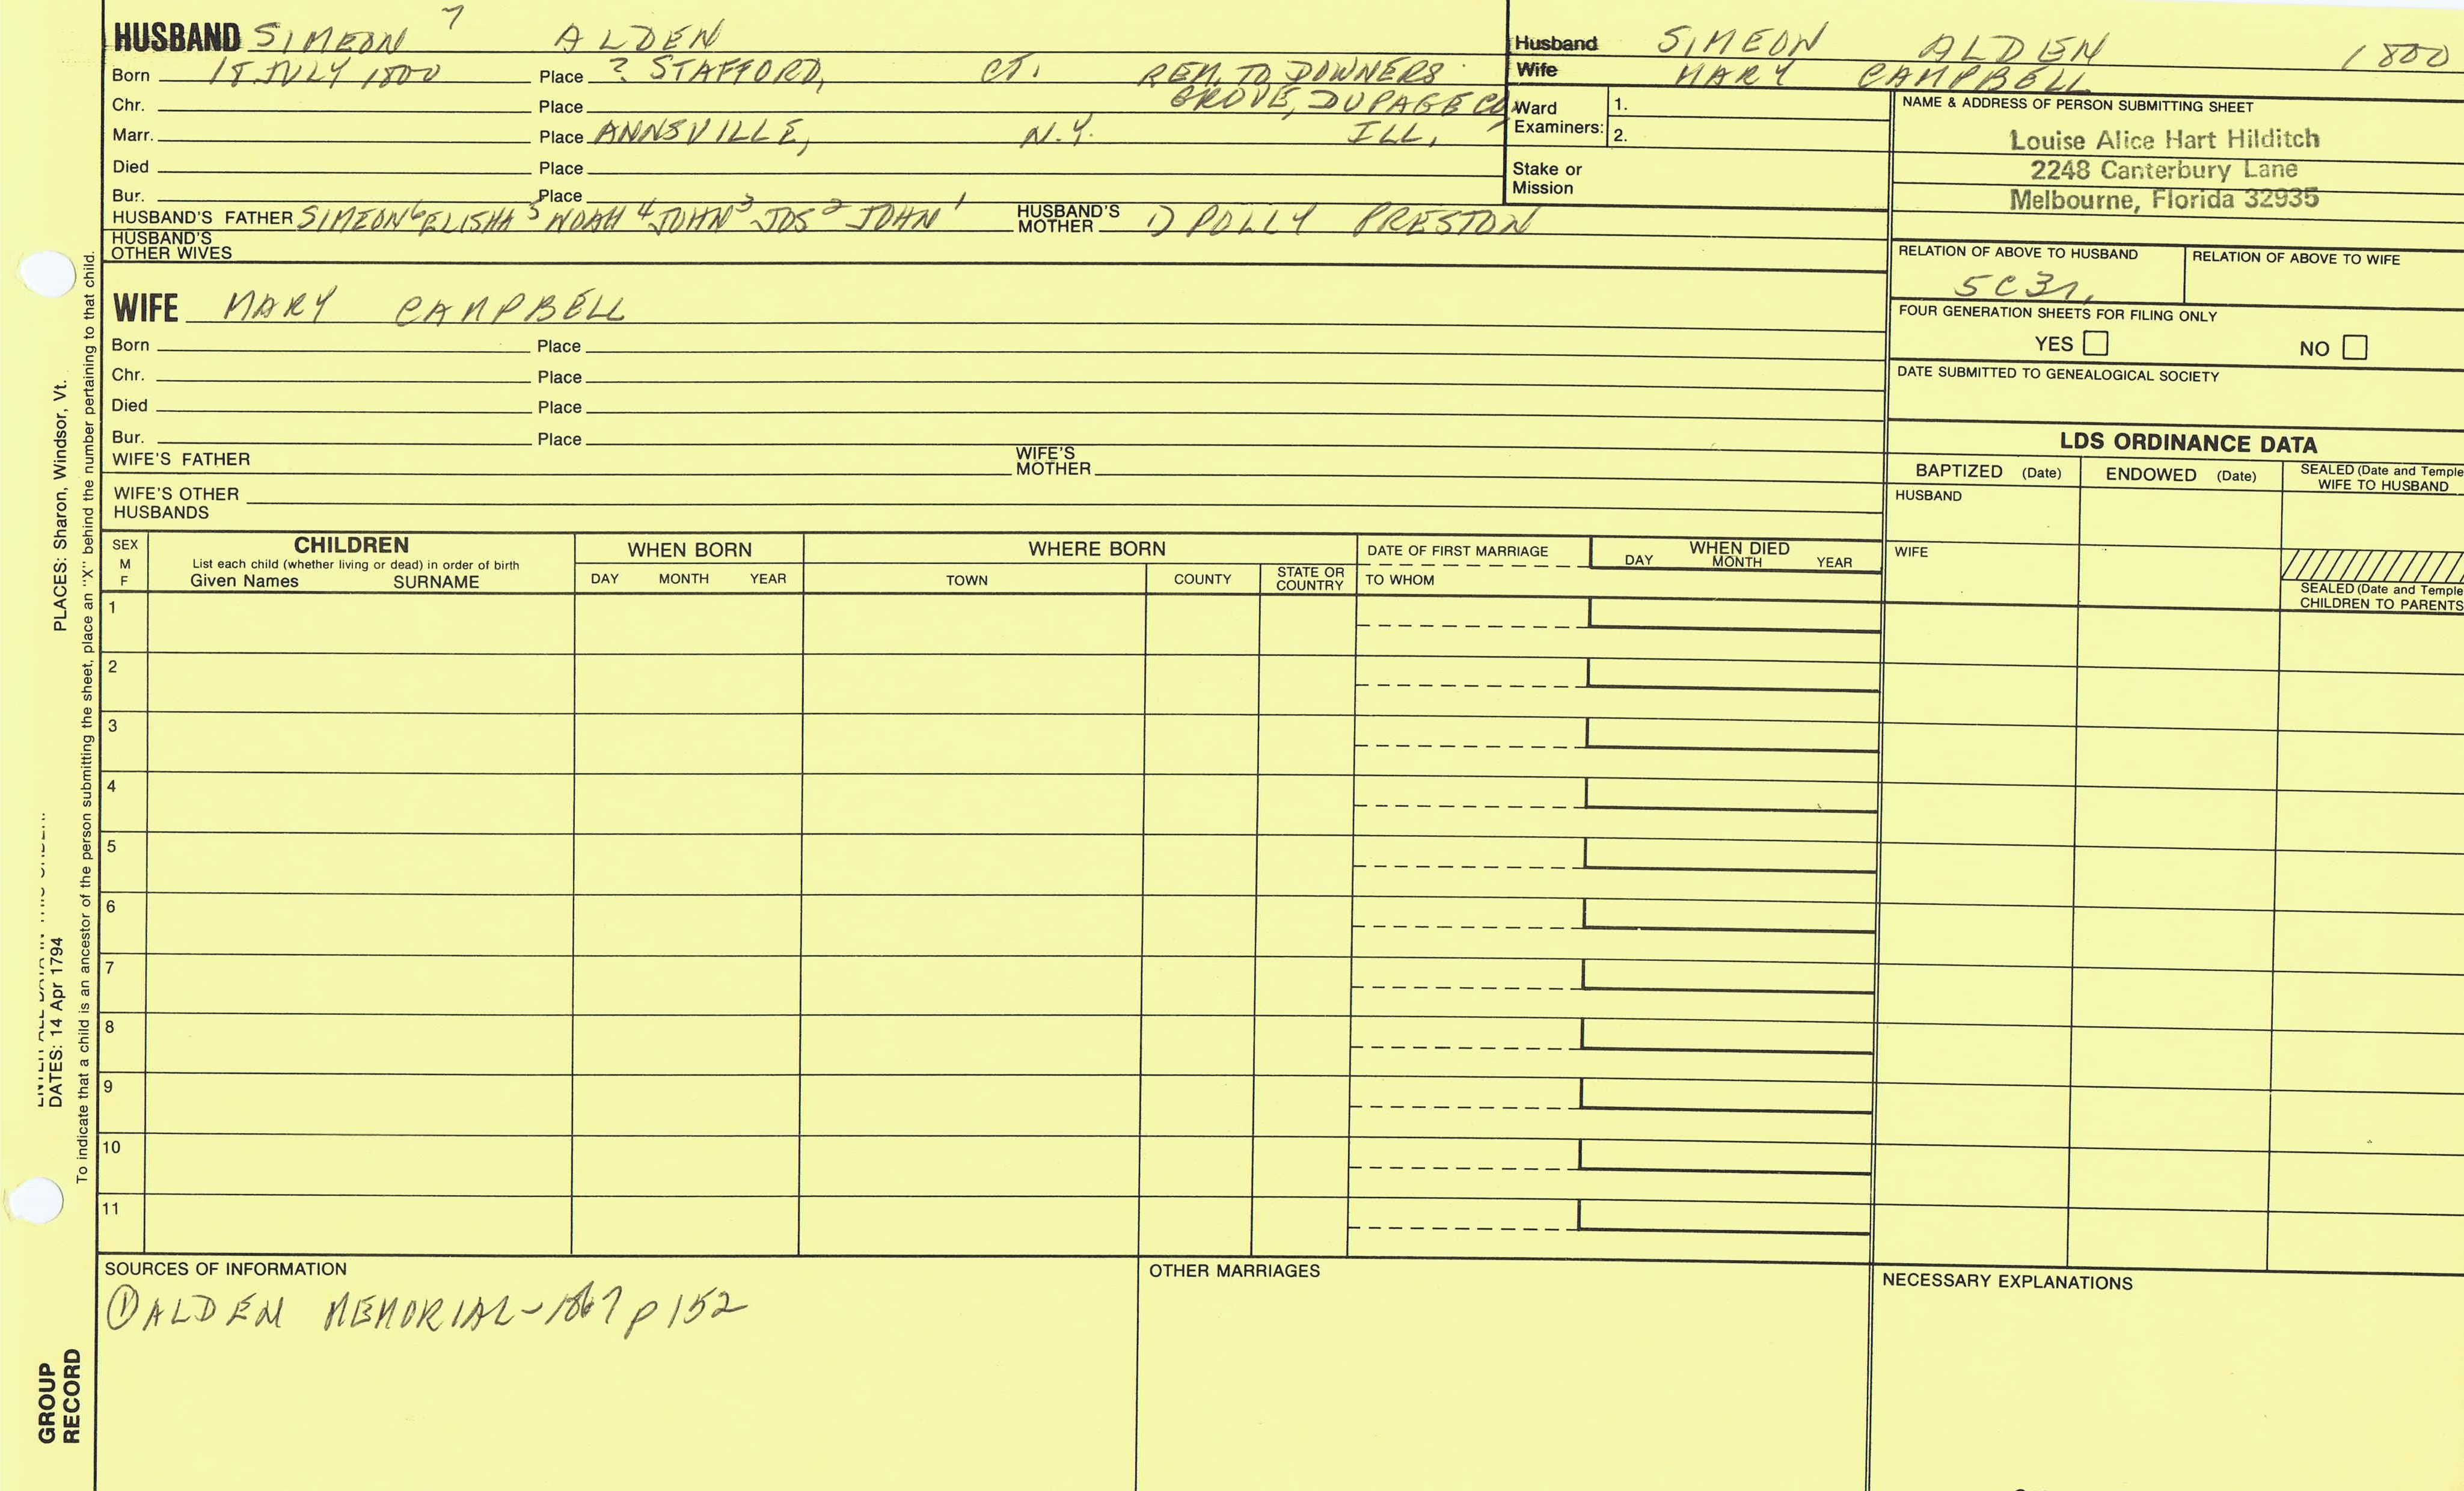 HUSBAND SIMEON 7 ALDEN
Born 18 JULY 1800 Place ? STAFFORD, CT. REM. TO DOWNERS
Chr. Place GROVE, DUPAGE CO,
Marr. Place ANNSVILLE, N.Y. ILL.
Died Place
Bur. Place
HUSBAND'S FATHER SIMEON 6 ELISHA 5 NOAH 4 JOHN 3 JOS 2 JOHN 1 HUSBAND'S MOTHER 1) POLLY PRESTON
HUSBAND'S OTHER WIVES
Husband SIMEON ALDEN 1800
Wife MARY CAMPBELL
Ward Examiners: 1.
2.
Stake or Mission
NAME & ADDRESS OF PERSON SUBMITTING SHEET
Louise Alice Hart Hilditch
2248 Canterbury Lane
Melbourne, Florida 32935
RELATION OF ABOVE TO HUSBAND RELATION OF ABOVE TO WIFE
5C3r.
FOUR GENERATION SHEETS FOR FILING ONLY
YES NO
DATE SUBMITTED TO GENEALOGICAL SOCIETY
WIFE MARY CAMPBELL
Born Place
Chr. Place
Died Place
Bur. Place
WIFE'S FATHER WIFE'S MOTHER
WIFE'S OTHER HUSBANDS
LDS ORDINANCE DATA
BAPTIZED (Date) ENDOWED (Date) SEALED (Date and Temple
WIFE TO HUSBAND
HUSBAND
WIFE
SEALED (Date and Temple
CHILDREN TO PARENTS
SEX
M
F
CHILDREN
List each child (whether living or dead) in order of birth
Given Names SURNAME
WHEN BORN
DAY MONTH YEAR
WHERE BORN
TOWN COUNTY STATE OR COUNTRY
DATE OF FIRST MARRIAGE
TO WHOM
WHEN DIED
DAY MONTH YEAR
1
2
3
4
5
6
7
8
9
10
11
SOURCES OF INFORMATION
① ALDEN MEMORIAL - 1867 p 152
OTHER MARRIAGES
NECESSARY EXPLANATIONS
PLACES: Sharon, Windsor, Vt.
DATES: 14 Apr 1794
To indicate that a child is an ancestor of the person submitting the sheet, place an "X" behind the number pertaining to that child.
GROUP
RECORD